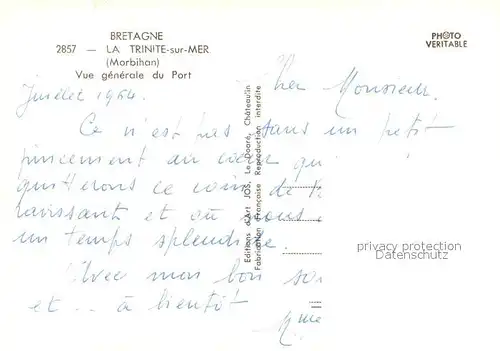 BRETAGNE
2857 — LA TRINITE-sur-MER
(Morbihan)
Vue générale du Port
PHOTO
VERITABLE
Juillet 1964.
Cher Monsieur.
Ce n'est pas sans un petit
pincement au cœur qu
quitterons ce coin de
ravissant et où nous
un temps splendide.
Avec mon bon
et .. à bientôt
Mme
Editions d'Art JOS. Le Doaré, Châteaulin
Fabrication Française Reproduction interdite
privacy protection
Datenschutz